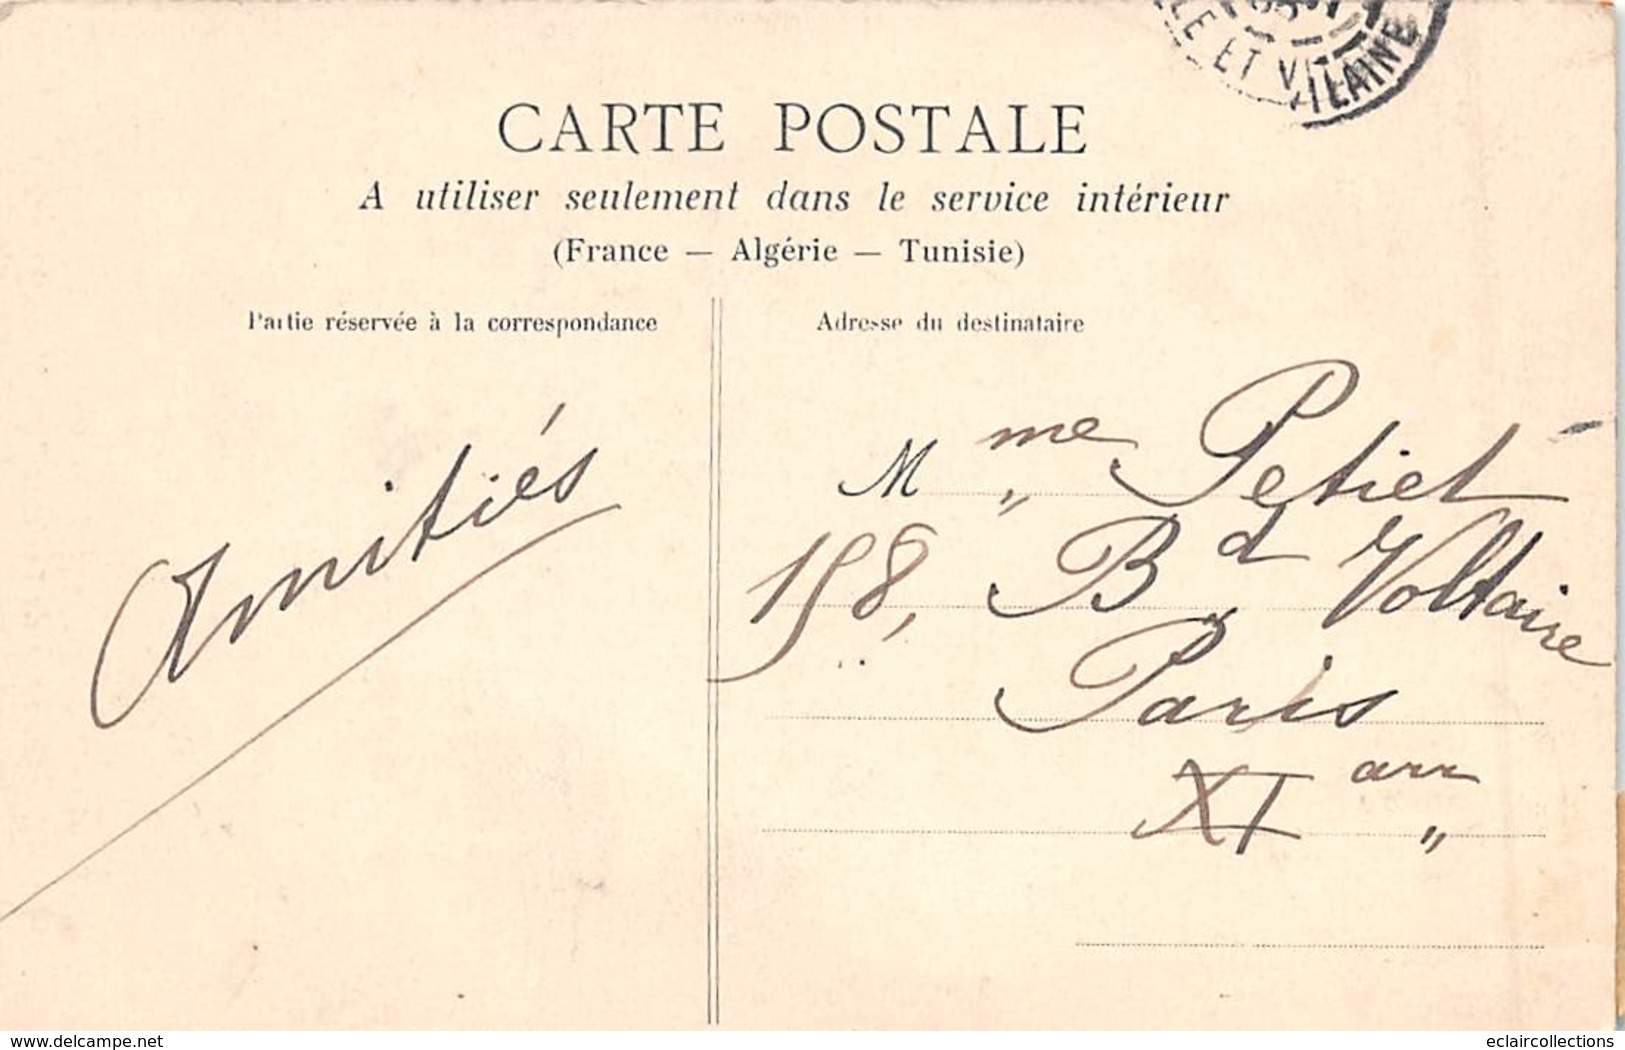 LLE ET VILAINE
CARTE POSTALE
A utiliser seulement dans le service intérieur
(France — Algérie — Tunisie)
Partie réservée à la correspondance
Adresse du destinataire
Amitiés
Mme Petiet
158, Bd Voltaire
Paris
XI arr
www.delcampe.net
eclaircollections